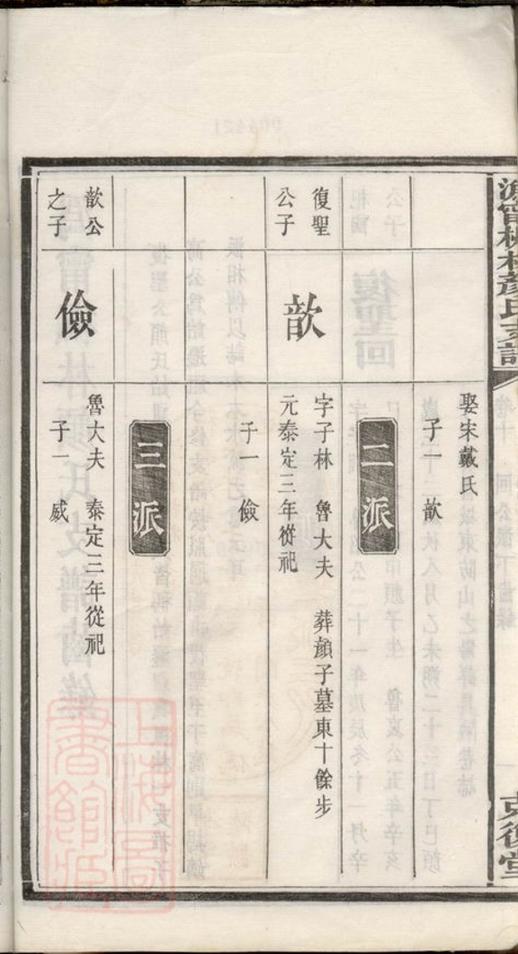 甯桃林顏氏支譜
復堂
娶宋戴氏
子一 歆
二派
復聖
公子
歆
字子林 魯大夫 葬顏子墓東十餘步
元泰定三年從祀
子一 儉
三派
歆公
之子
儉
魯大夫 泰定三年從祀
子一 威
上海圖
書館藏